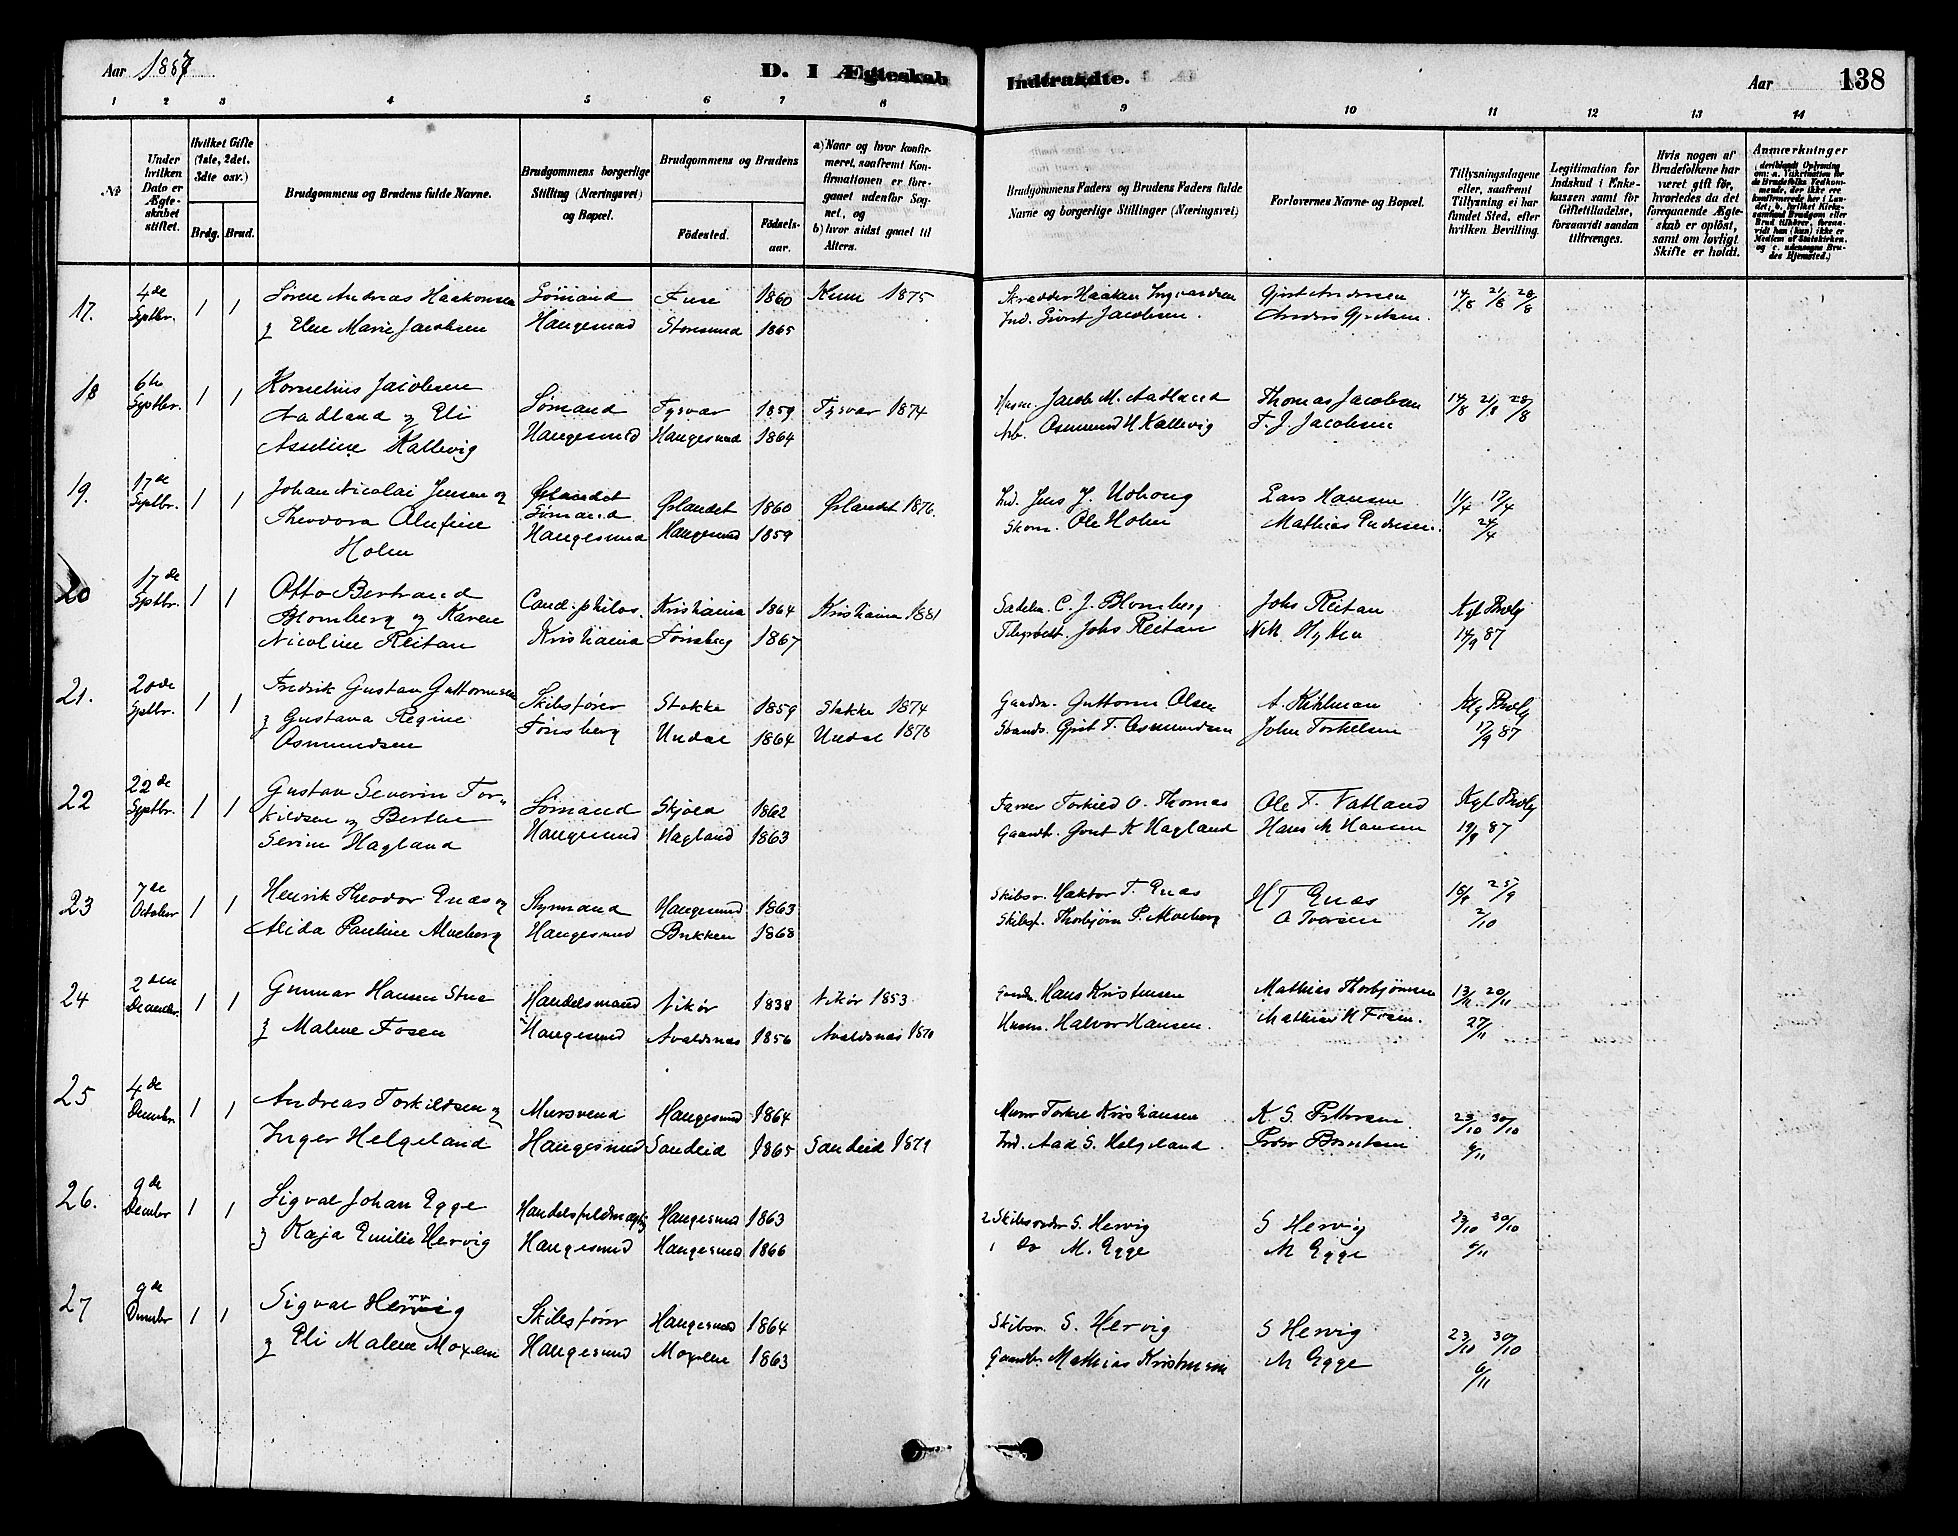 Aar 1887 D. I Ægteskab Indtraadte. Aar 138
1 2 3 4 5 6 7 8 9 10 11 12 13 14
№
Under hvilken Dato er Ægteskabet stiftet.
Hvilket Gifte (1ste, 2det. 3dte osv.)
Brdg. Brud.
Brudgommens og Brudens fulde Navne.
Brudgommens borgerlige Stilling (Næringsvei) og Bopæl.
Brudgommens og Brudens
Födested. Födselsaar.
a) Naar og hvor konfirmeret, saafremt Konfirmationen er foregaaet udenfor Sognet, og
b) hvor sidst gaaet til Alters.
Brudgommens Faders og Brudens Faders fulde Navne og borgerlige Stillinger (Næringsvei)
Forlovernes Navne og Bopæl.
Tillysningsdagene eller, saafremt Tillysning ei har fundet Sted, efter hvilken Bevilling.
Legitimation for Indskud i Enkekassen samt for Giftetilladelse, forsaavidt saadan tiltrænges.
Hvis nogen af Brudefolkene har været gift før, hvorledes da det foregaaende Ægteskab er opløst, samt om lovligt Skifte er holdt.
Anmærkninger
17. 4de Septbr. 1 1 Sören Andreas Haakonsen Sömand Fuse 1860 1875 Skrædder Haakon Ingvaldsen Gjert Andersen 14/8 21/8 28/8
& Eline Marie Jacobsen Haugesund Storesund 1865 Ind. Sivert Jacobsen. Anders Gjertsen.
18 6te Septbr. 1 1 Kornelius Jacobsen
Aadland & Eli Sömand Tysvær 1859 Tysvær 1874 Husm. Jacob M. Aadland Thomas Jacobsen 14/8 21/8 28/8
Asseline Kallevig Haugesund Haugesund 1864 Arb. Osmund H Kallevig F. J. Jacobsen
19. 17de Septbr. 1 1 Johan Nicolai Jensen og Ørlandet
Sömand Ørlandet 1860 Ørlandet 1876. Ind. Jens J. Uthoug Lars Hansen 11/4 17/4
Theodora Olufine Haugesund Haugesund 1859 Skom. Ole Holm Mathias Pedersen. 24/4
Holm
20 17de Septbr. 1 1 Otto Bertrand Cand. philos. Kristiania 1864 Kristiania 1881 Sadelm. C. J. Blomberg Johs Reitan Kgl Bevlg
Blomberg og Karen
Nicoline Reitan Kristiania Tönsberg 1867 Telegrbest. Johs Reitan 14/9 87
21. 20de Septbr. 1 1 Fredrik Gustav Guttormsen Skibsfører Stokke 1859 Stokke 1874 Gaardm. Guttorm Olsen A. Kihlman Klg Bevlg
& Gustava Regine Tönsberg Undal 1864 Undal 1878 Gjert T. Osmundsen John Torkelsen 17/9 87
Osmundsen
22 22de Septbr. 1 1 Gustav Severin Tor- Sömand Skjold 1862 Farver Torkild O. Thomas Ole T. Vatland Kgl Bevlg
kildsen og Berthe Haugesund Hagland 1863 Gaardbr. Govert K Hagland Hans M Hansen 19/9 87
Serine Hagland
23 7de October 1 1 Henrik Theodor Enæs og Styrmand Haugesund 1863 Skibsr. Haktor T. Enæs H T Enæs 18/9 25/9
Alida Pauline Alveberg Haugesund Bukken 1868 Skibsf. Thorbjörn P. Alveberg O Iversen 2/10
24 2den December. 1 1 Gunnar Hansen Stue Handelsmand Vikör 1838 Vikör 1853 Gaardm. Hans Kristensen Mathias Thorbjörnsen 13/11 20/11
& Malene Fosen Haugesund Avaldsnæs 1856 Avaldsnæs 1870 Husm. Halvor Hansen. Mathias H Fosen. 27/11
25 4de December 1 1 Andreas Torkildsen og Mursvend Haugesund 1864 Murer Torkel Kristiansen K. S. Pettersen 23/10 30/10
Inger Helgeland Haugesund Sandeid 1865 Sandeid 1879 Ind. Aad S. Helgeland. Peder Berntsen 6/11
26. 9de December 1 1 Sigval Johan Egge Handelsfuldmægtig Haugesund 1863 2 Skibsreder S. Hervig S Hervig 23/10 30/10
& Kaja Emilie Hervig Haugesund Haugesund 1866 1 Do M. Egge M Egge 6/11
27 9de December 1 1 Sigval Hervig Skibsförer Haugesund 1864 Skibsr. S. Hervig S Hervig 23/10 30/10
& Eli Malene Moxene Haugesund Moxene 1863 Gaardbr Mathias Kristensen M Egge 6/11